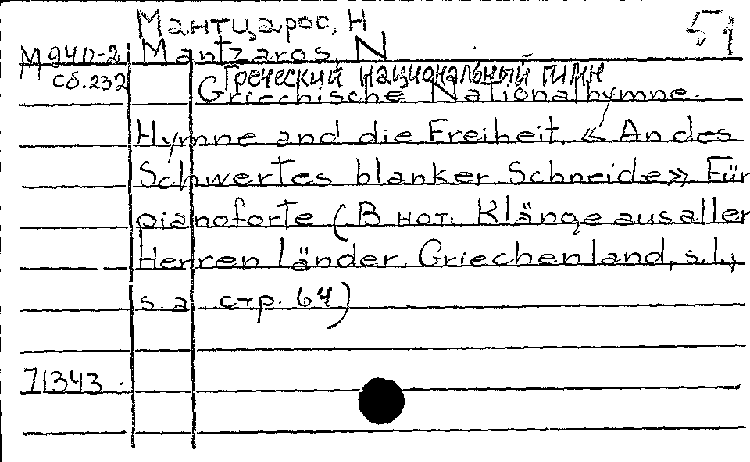 Мантцарос, Н 51
М940-2 Mantzaros, N
Сб.232 Греческий национальный гимн
Griechische Nationalhymne.
Hymne and die Freiheit. « An des
Schwertes blanker Schneide» Für
pianoforte (В нот: Klänge aus aller
Herren länder. Griechenland, s.l.,
s.a стр. 64)
71343.